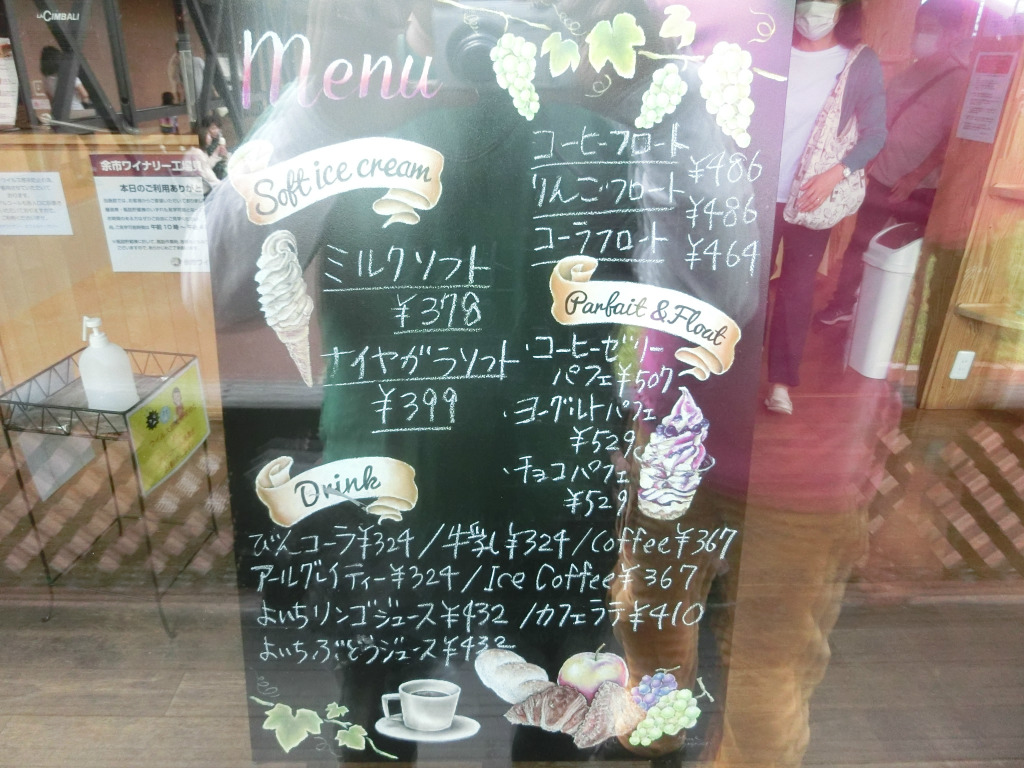 LACIMBALI
Menu
余市ワイナリー工場
本日のご利用ありがと
Soft ice cream
ミルクソフト
¥378
ナイヤガラソフト
¥399
コーヒーフロート
¥486
りんごフロート
¥486
コーラフロート
¥464
Parfait & Float
・コーヒーゼリー
パフェ¥507
・ヨーグルトパフェ
¥529
・チョコパフェ
¥529
Drink
びんコーラ¥324/牛乳¥324/Coffee¥367
アールグレイティー¥324/Ice Coffee¥367
よいちリンゴジュース¥432/カフェラテ¥410
よいちぶどうジュース¥432